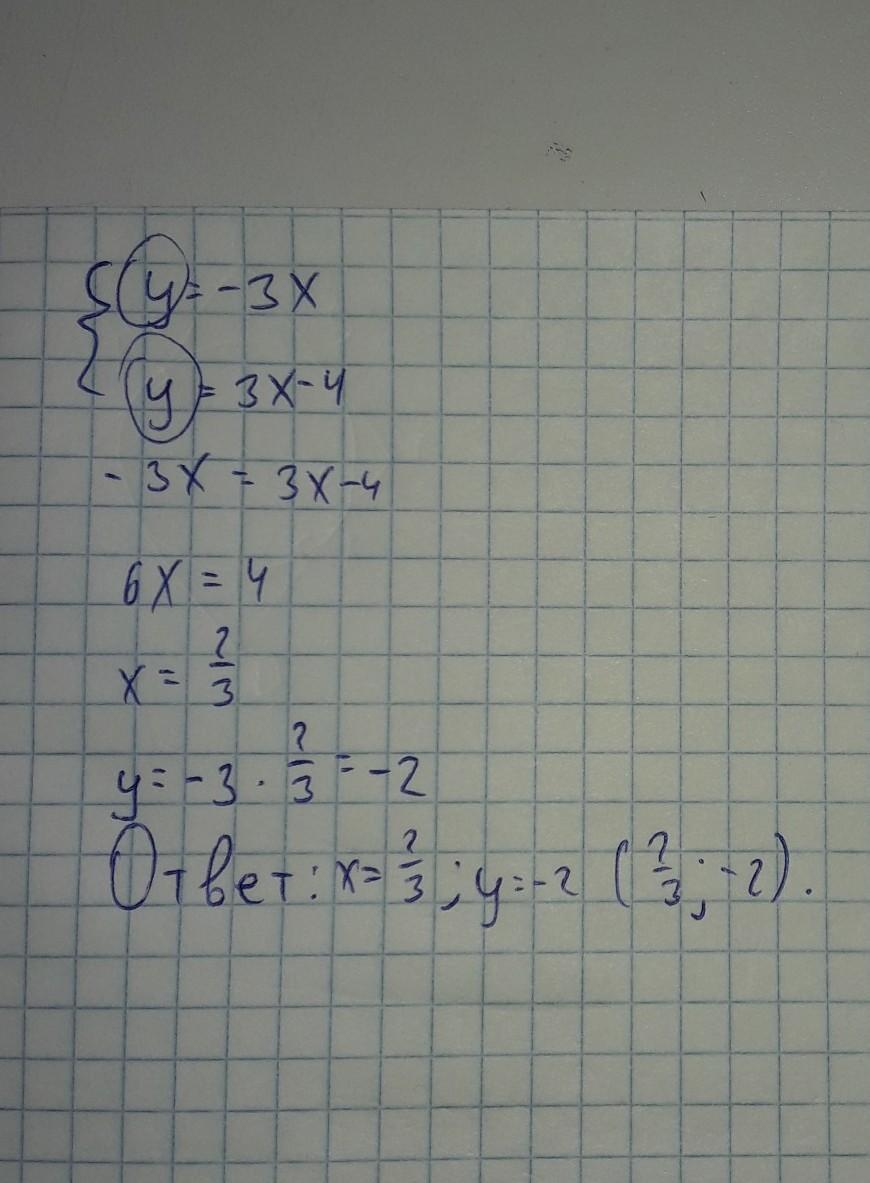 { y = -3x
y = 3x-4
-3x = 3x-4
6x = 4
x = 2/3
y = -3 · 2/3 = -2
Ответ: x = 2/3 ; y = -2 (2/3 ; -2).